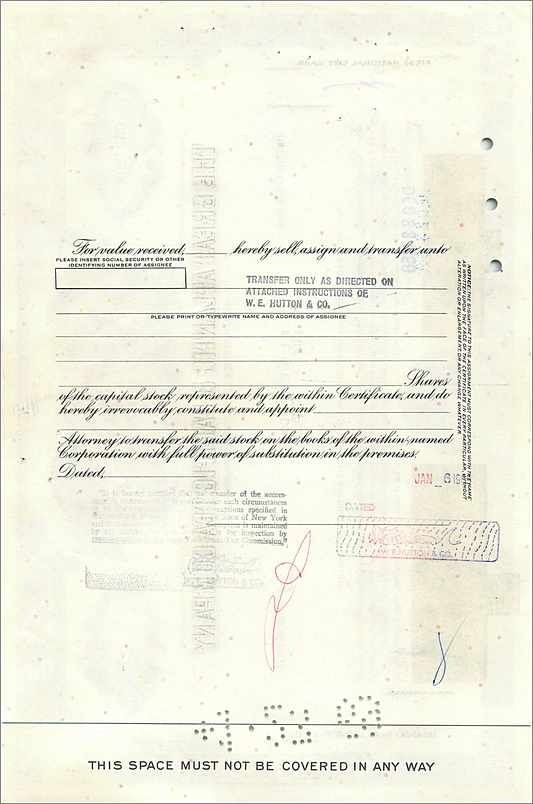 For value received, hereby sell, assign and transfer unto
PLEASE INSERT SOCIAL SECURITY OR OTHER
IDENTIFYING NUMBER OF ASSIGNEE
TRANSFER ONLY AS DIRECTED ON
ATTACHED INSTRUCTIONS OF
W. E. HUTTON & CO.
PLEASE PRINT OR TYPEWRITE NAME AND ADDRESS OF ASSIGNEE
Shares
of the capital stock represented by the within Certificate, and do
hereby irrevocably constitute and appoint
Attorney to transfer the said stock on the books of the within-named
Corporation with full power of substitution in the premises.
Dated,
JAN 6
NOTICE: THE SIGNATURE TO THIS ASSIGNMENT MUST CORRESPOND WITH THE NAME
AS WRITTEN UPON THE FACE OF THE CERTIFICATE IN EVERY PARTICULAR, WITHOUT
ALTERATION OR ENLARGEMENT, OR ANY CHANGE WHATEVER.
of the
such circumstances
specified in
of New York
is maintained
for inspection by
Commission."
HUTTON & CO.
DATED
W. E. HUTTON & CO.
THIS SPACE MUST NOT BE COVERED IN ANY WAY